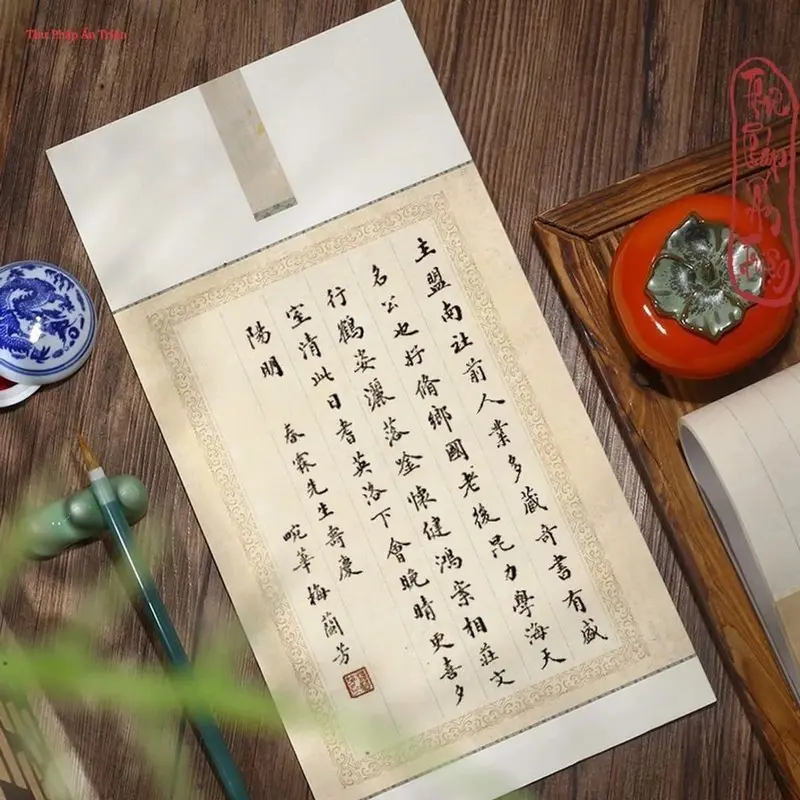 Thư Pháp Ấn Triện
主盟南社前人業多藏奇書有盛
名公也好脩鄉國老後昆力學海天
行鶴姿灑落唫懷健鴻案相莊文
室清此日耆英洛下會晚晴更喜夕
陽明
春霖先生壽慶
畹華梅蘭芳